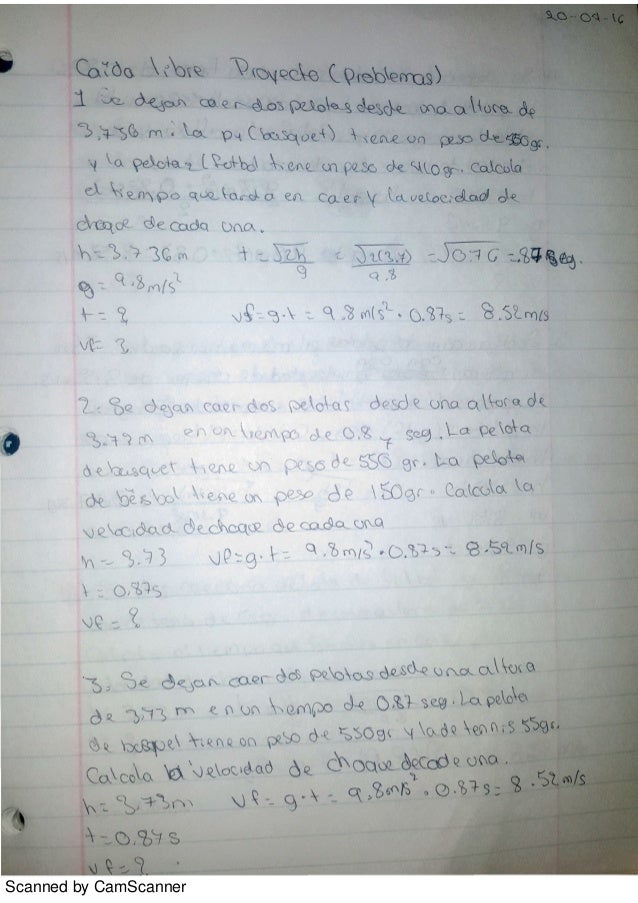 20-04-16
Caída libre Proyecto (Problemas)
1 se dejan caer dos pelotas desde una altura de
3.736 m. La p1 (basquet) tiene un peso de 550gr.
y la pelota 2 (futbol tiene un peso de 410gr. calcula
el tiempo que tarda en caer y la velocidad de
choque de cada una.
h=3.736m t=√2h/g = √2(3.7)/9.8 =√0.76=.87seg.
g=9.8m/s²
t=? vf=g.t = 9.8m/s². 0.87s= 8.52m/s
vf=?
2. Se dejan caer dos pelotas desde una altura de
3.73m en un tiempo de 0.87 seg. La pelota
de basquet tiene un peso de 550 gr. La pelota
de béisbol tiene un peso de 150gr. Calcula la
velocidad de choque de cada una
h=3.73 vf=g.t= 9.8m/s².0.87s= 8.52m/s
t=0.87s
vf=?
3. Se dejan caer dos pelotas desde una altura
de 3.73 m en un tiempo de 0.87 seg. La pelota
de basquet tiene un peso de 550gr y la de tennis 55gr.
Calcula la velocidad de choque de cada una.
h=3.73m vf=g.t=9.8m/s².0.87s=8.52m/s
t=0.87s
vf=?
Scanned by CamScanner